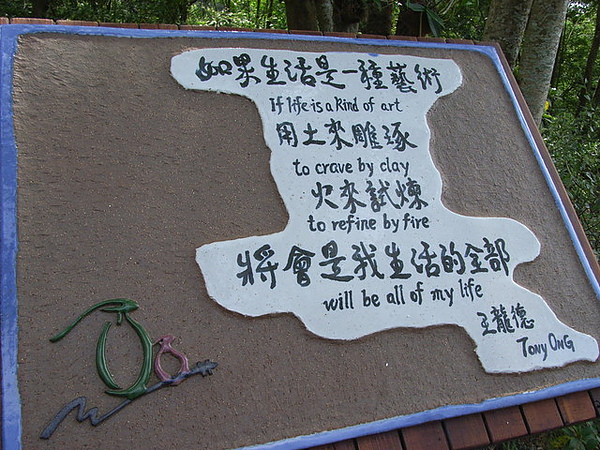 如果生活是一種藝術
If life is a kind of art
用土來雕琢
to crave by clay
火來試煉
to refine by fire
將會是我生活的全部
will be all of my life
王龍德
TONY ONG